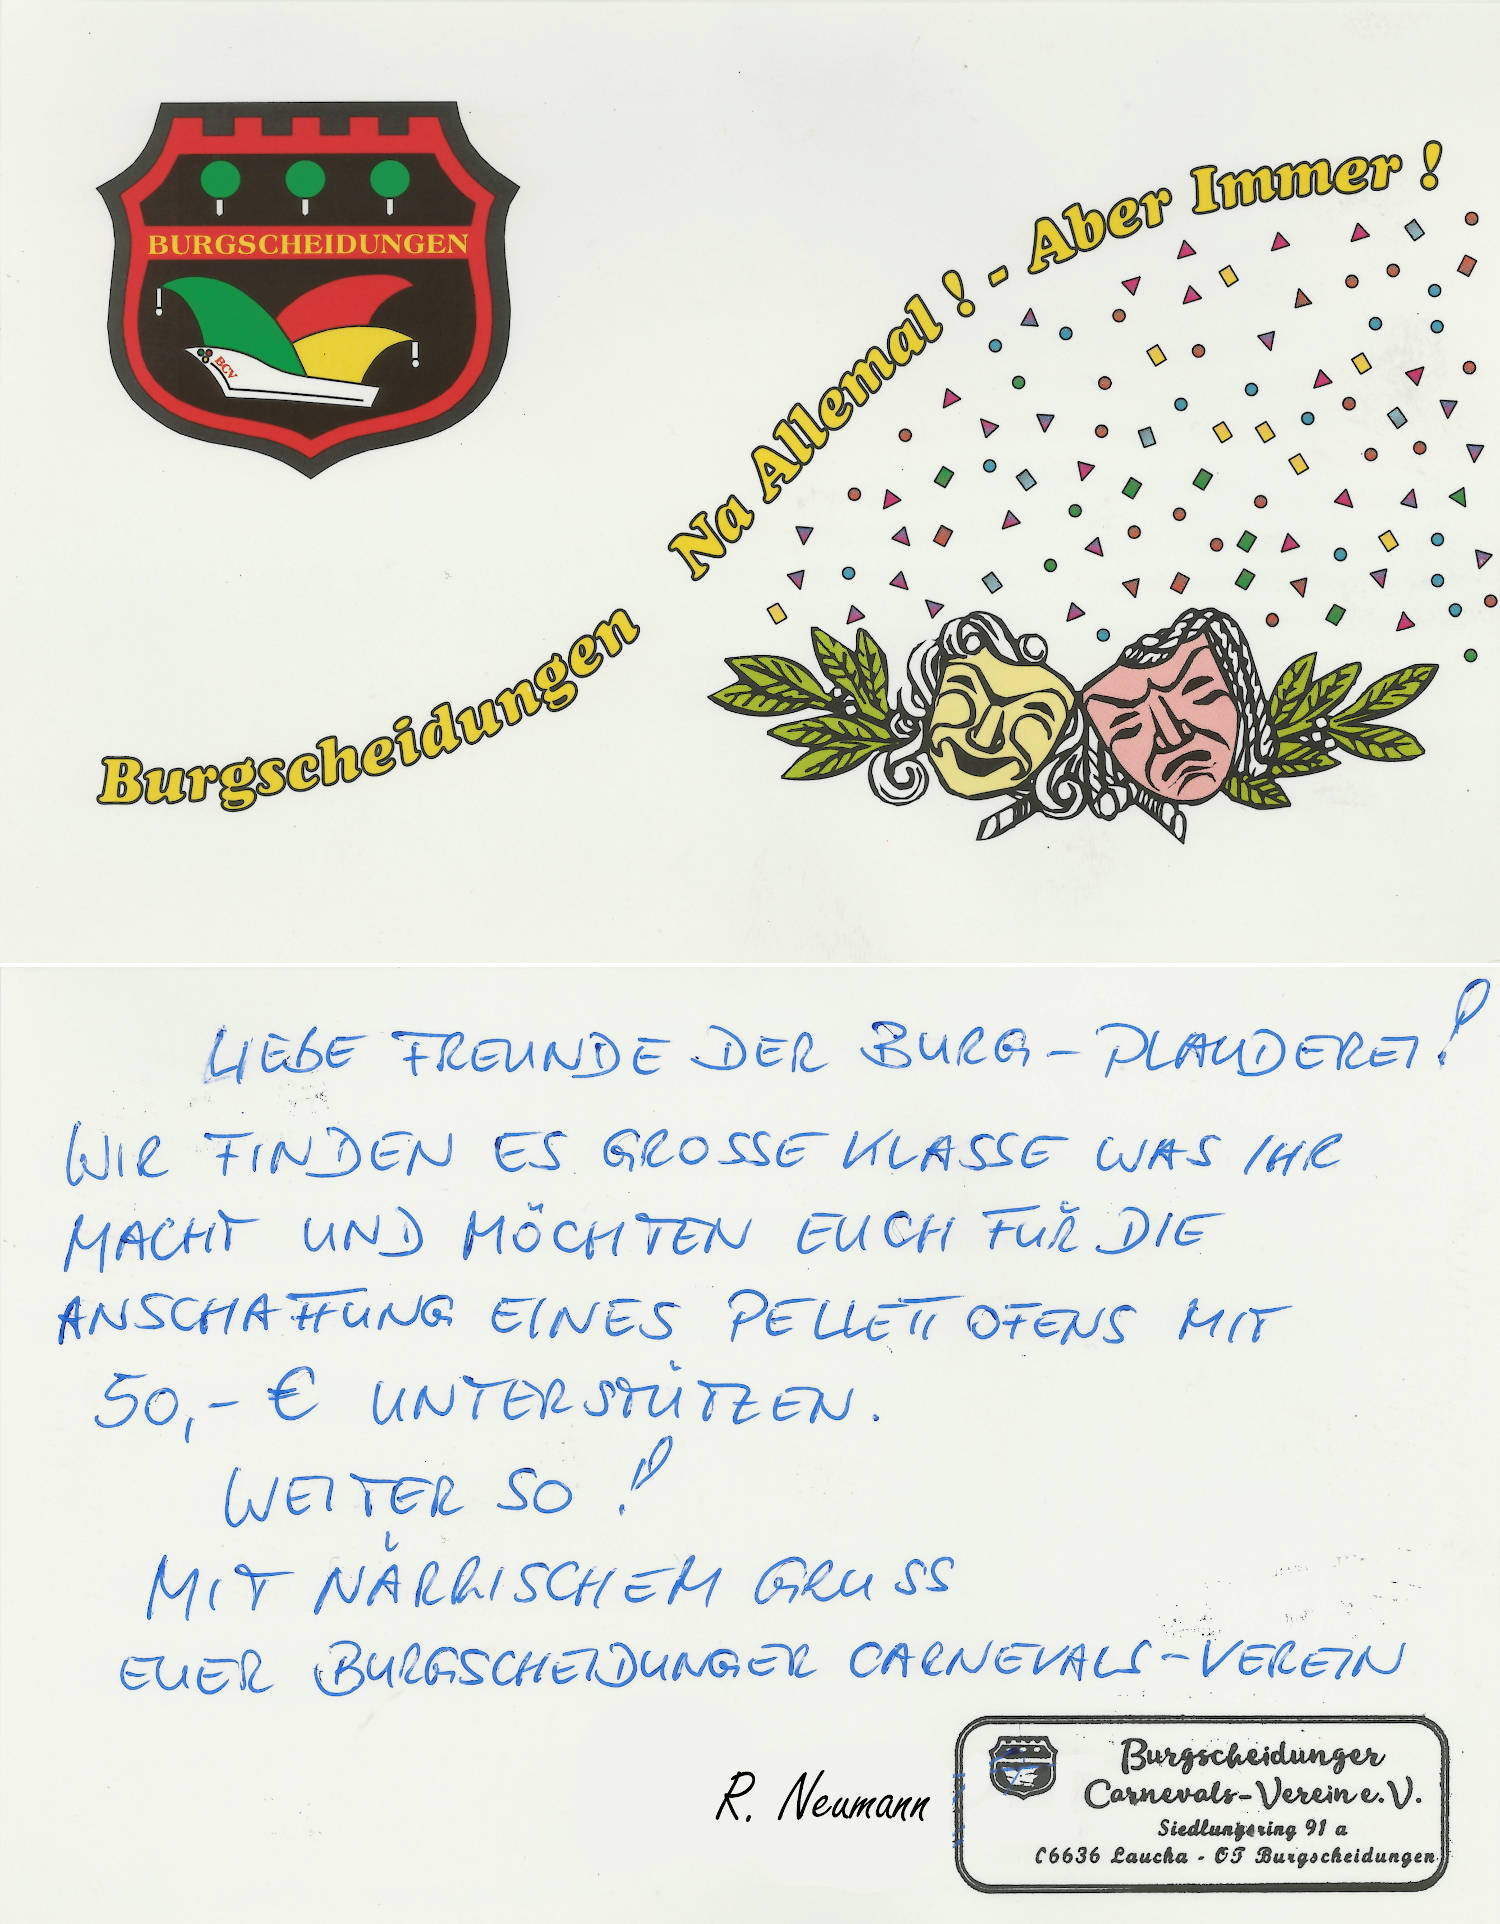 BURGSCHEIDUNGEN
BCV
Burgscheidungen Na Allemal ! - Aber Immer !
LIEBE FREUNDE DER BURG - PLAUDEREI !
WIR FINDEN ES GROSSE KLASSE WAS IHR
MACHT UND MÖCHTEN EUCH FÜR DIE
ANSCHAFFUNG EINES PELLETTOFENS MIT
50,- € UNTERSTÜTZEN.
WEITER SO !
MIT NÄRRISCHEM GRUSS
EUER BURGSCHEIDUNGER CARNEVALS-VEREIN
R. Neumann
Burgscheidunger
Carnevals-Verein e.V.
Siedlungsring 91 a
06636 Laucha - OT Burgscheidungen